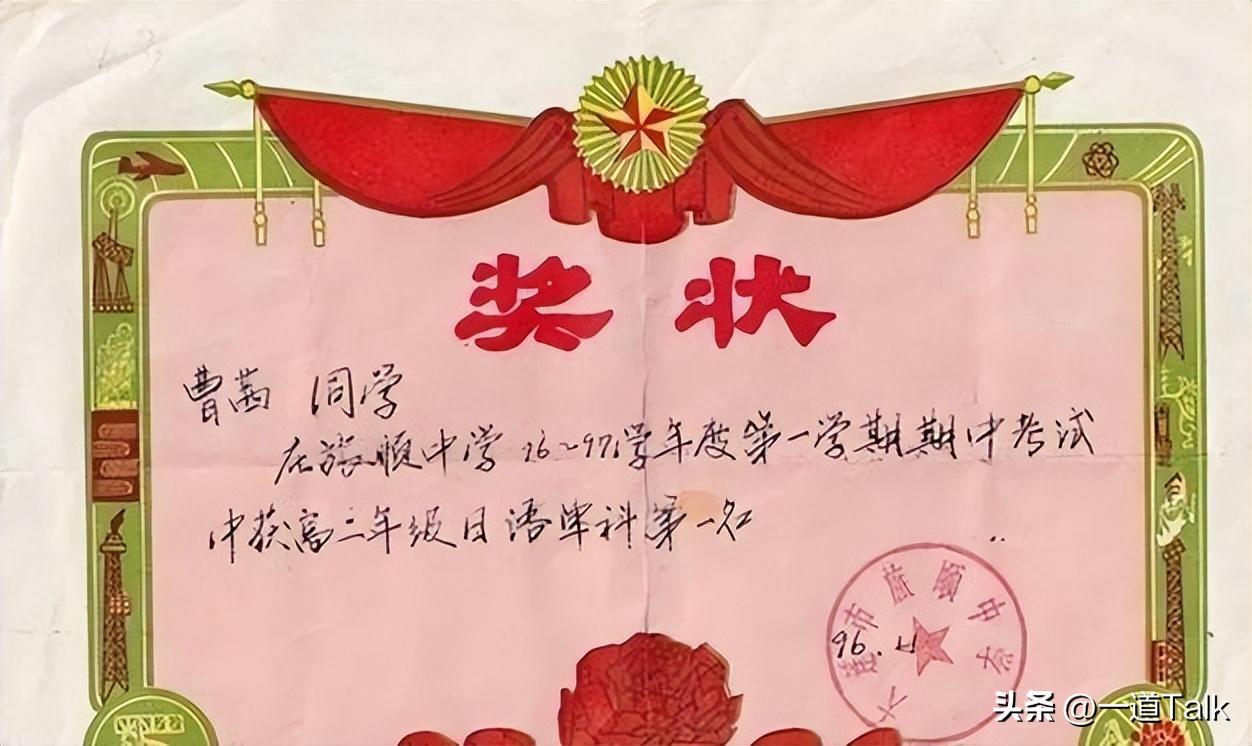 奖状
曹茜 同学
在旅顺中学96~97学年度第一学期期中考试
中获高二年级日语单科第一名
大连市旅顺中学
96.11
头条 @一道Talk